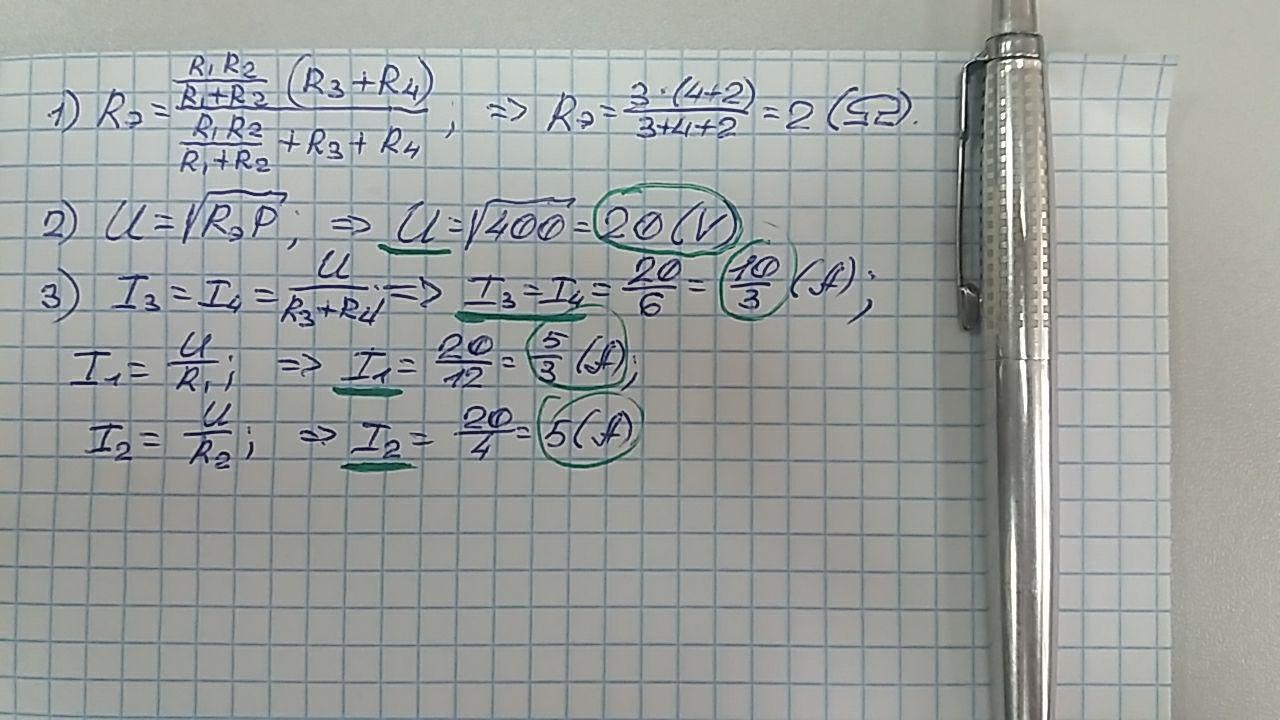 1) Rэ = \frac{\frac{R₁R₂}{R₁+R₂}(R₃+R₄)}{\frac{R₁R₂}{R₁+R₂}+R₃+R₄}; => Rэ = \frac{3·(4+2)}{3+4+2} = 2 (Ω).
2) U = √(RэP); => U = √400 = 20 (V)
3) I₃ = I₄ = \frac{U}{R₃+R₄}; => I₃ = I₄ = \frac{20}{6} = \frac{10}{3} (A);
I₁ = \frac{U}{R₁}; => I₁ = \frac{20}{12} = \frac{5}{3} (A);
I₂ = \frac{U}{R₂}; => I₂ = \frac{20}{4} = 5 (A)